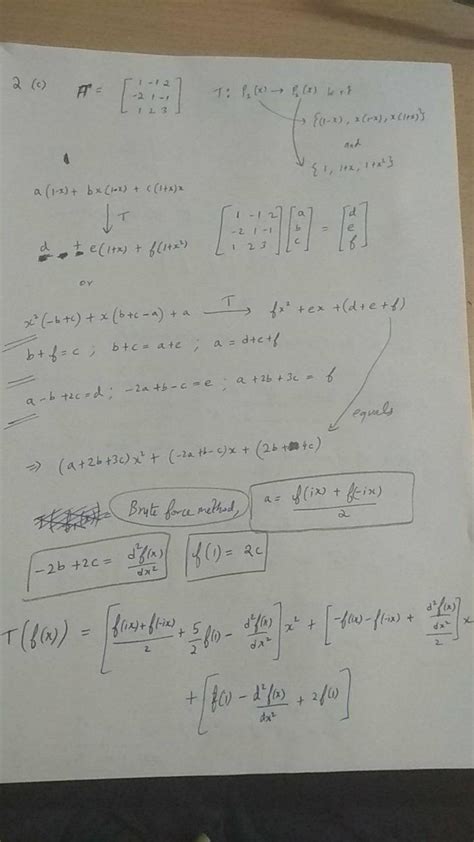 2 (c) A = [ 1 -1 2 ; -2 1 -1 ; 1 2 3 ] T: P₂(x) → P₂(x)
{(1-x), x(1-x), x(1+x)}
and
{1, 1+x, 1+x²}
a(1-x) + bx(1-x) + c(1+x)x
↓ T
d + e(1+x) + f(1+x²) [ 1 -1 2 ; -2 1 -1 ; 1 2 3 ] [ a ; b ; c ] = [ d ; e ; f ]
or
x²(-b+c) + x(b+c-a) + a —T→ fx² + ex + (d+e+f)
b+f=c ; b+c=a+e ; a=d+e+f
a-b+2c=d ; -2a+b-c=e ; a+2b+3c=f
equals
⇒ (a+2b+3c)x² + (-2a+b-c)x + (2b+4c)
Brute force method, a = (f(ix) + f(-ix))/2
-2b+2c = d²f(x)/dx² f(1) = 2c
T(f(x)) = [ (f(ix)+f(-ix))/2 + 5/2 f(1) - d²f(x)/dx² ] x² + [ -f(ix) - f(-ix) + (d²f(x)/dx²)/2 ] x
+ [ f(1) - d²f(x)/dx² + 2f(1) ]